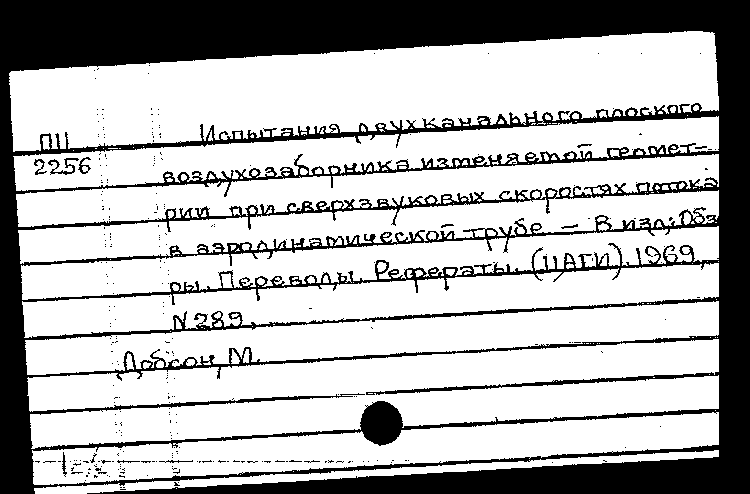 Испытания двухканального плоского
ПЦ
2256
воздухозаборника изменяемой геомет-
рии при сверхзвуковых скоростях потока
в аэродинамической трубе – В изд.: Обзо
ры. Переводы. Рефераты. (ЦАГИ). 1969,
N 289,
Добсон, М.